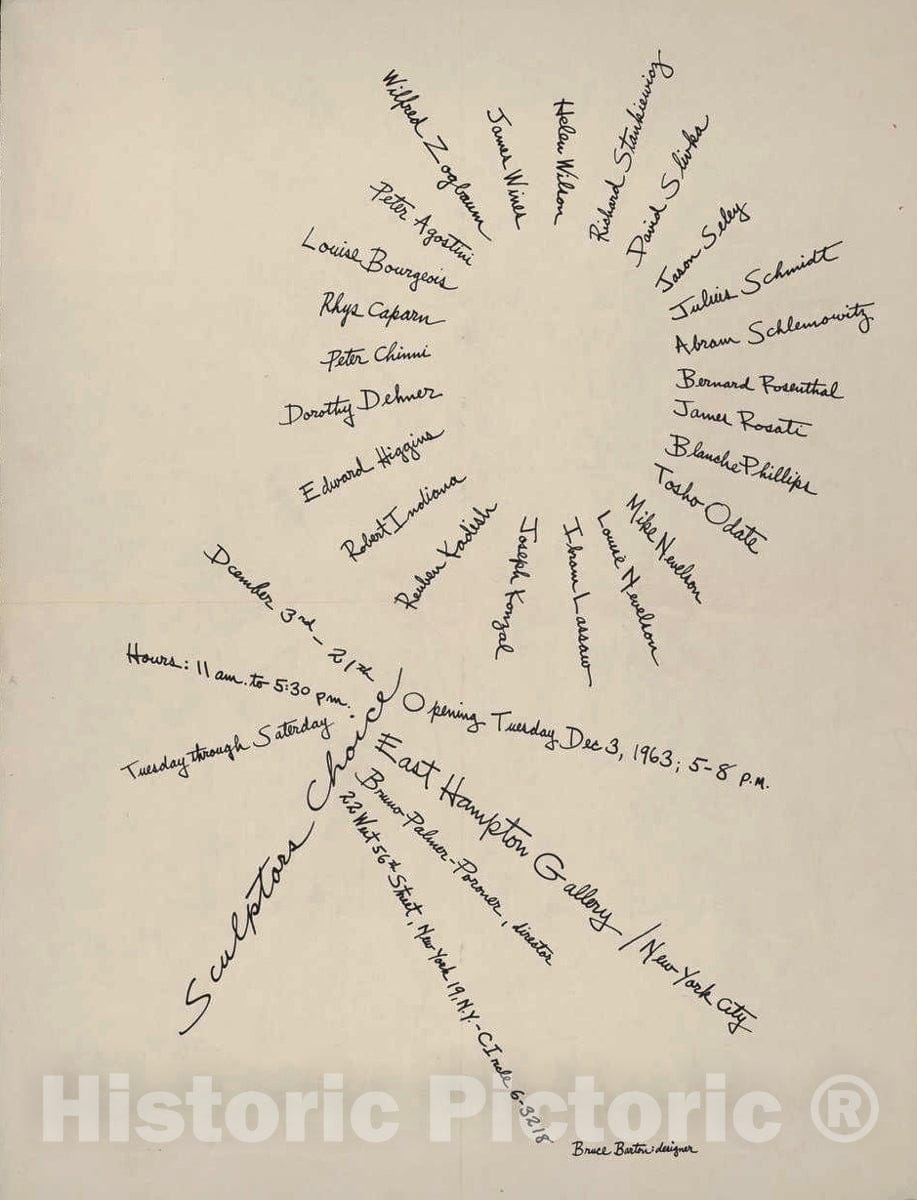 Wilfred Zogbaum
James Wines
Helen Wilson
Richard Stankiewicz
David Slivka
Jason Seley
Julius Schmidt
Abram Schlemowitz
Bernard Rosenthal
James Rosati
Blanche Phillips
Tosho Odate
Mike Nevelson
Louise Nevelson
Ibram Lassaw
Joseph Konzal
Reuben Kadish
Robert Indiana
Edward Higgins
Dorothy Dehner
Peter Chinni
Rhys Caparn
Louise Bourgeois
Peter Agostini
Dcember 3rd - 21th
Hours: 11 am. to 5:30 pm.
Tuesday through Saterday
Sculptors Choice
Opening Tuesday Dec 3, 1963; 5-8 P.M.
East Hampton Gallery / New York City
Bruno Palmer-Poroner, director
22 West 56th Street, New York 19, N.Y. - CIrcle 6-3218
Bruce Barton: designer
Historic Pictoric ®